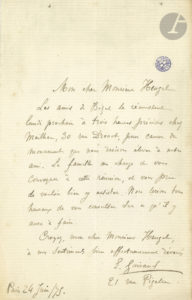 Mon cher Monsieur Heugel
Les amis de Bizet se réunissent
lundi prochain à trois heures précises chez
30 rue Drouot, pour causer du
monument que nous voulons élever à notre
ami. La famille me charge de vous
convoquer à cette réunion, et vous prie
de vouloir bien y assister. Nous serions bien
heureux de vous consulter sur ce qu'il y
aura à faire.
Croyez, mon cher Monsieur Heugel,
à mes sentiments bien affectueusement dévoués
E. Guiraud
21 rue Pigalle
Paris 24 Juin /75.